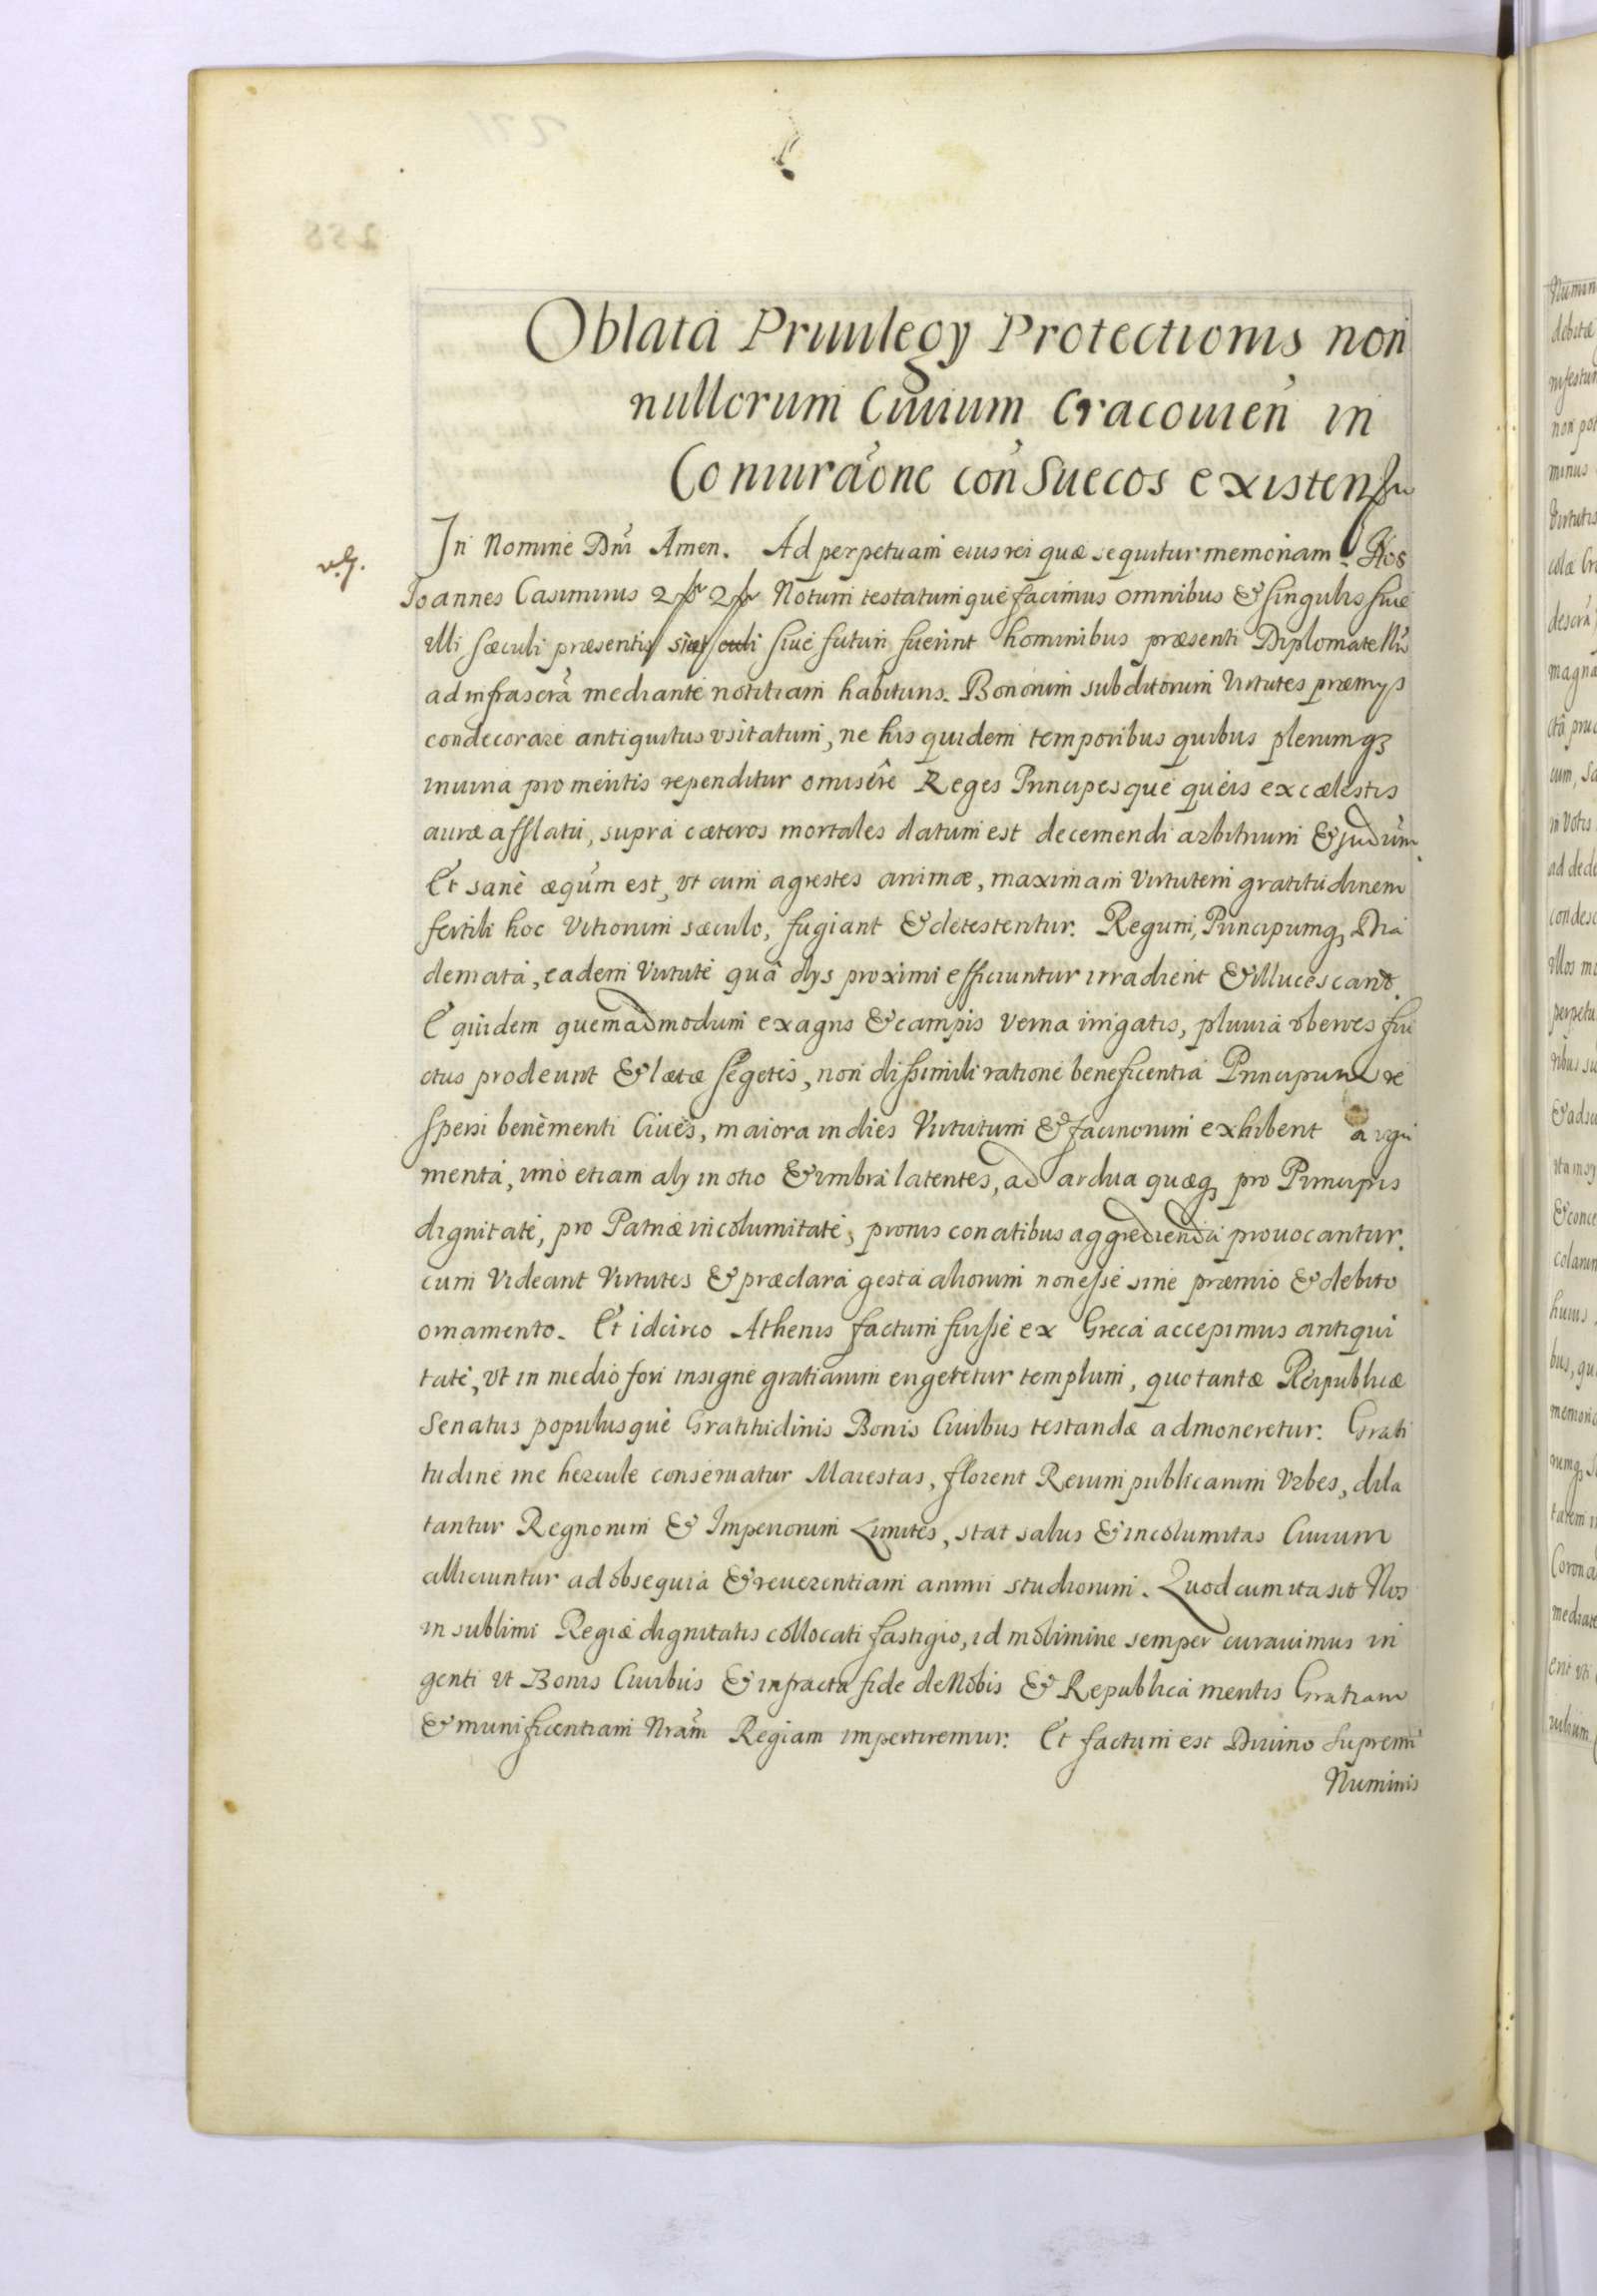 Oblata Priuilegy Protectionis non
nullorum Ciuium Cracouien in
Coniuraone con Suecos existen
In Nomine Dni Amen. Ad perpetuam eius rei quæ sequitur memoriam. Nos
Joannes Casimirus Notum testatumque facimus omnibus & singulis siue
illi sæculi præsentis siue futuri fuerint hominibus præsenti Diplomate Nro
ad infrascra mediante notitiam habituris. Bonorum subditorum Virtutes præmys
condecorare antiquitus vsitatum, ne his quidem temporibus quibus plerumq3
iniuria pro meritis rependitur omisere Reges Principesque queis ex cælestis
auræ afflatu, supra cæteros mortales datum est decernendi arbitrium & judium
Et sane æqum est, vt cum agrestes animæ, maximam Virtutem gratitudinem
fertili hoc Vitiorum sæculo, fugiant & detestentur. Regum, Principumq3 Dia
demata, eadem Virtute quâ dys proximi efficiuntur irradient & illucescant.
Equidem quemadmodum ex agris & campis verna irrigatis, pluuia vberes fru
ctus prodeunt & lætæ segetes, non dissimili ratione beneficentia Principum re
spersi benèmeriti Ciues, maiora indies Virtutum & facinorum exhibent argu
menta, imò etiam aly in otio & vmbra latentes, ad ardua quæq3 pro Principis
dignitate, pro Patriæ incolumitate, pronis conatibus aggredienda prouocantur.
cum Videant Virtutes & præclara gesta aliorum non esse sine præmio & debito
ornamento. Et idcirco Athenis factum fuisse ex Greca accepimus antiqui
tate, vt in medio fori insigne gratiarum erigeretur templum, quo tantæ Reipublicæ
Senatus populusque Gratitudinis Bonis Ciuibus testandæ admoneretur. Grati
tudine me hercule conseruatur Maiestas, florent Rerum publicarum Vrbes, dila
tantur Regnorum & Imperiorum Limites, stat salus & incolumitas Ciuium
alliciuntur ad obsequia & reuerentiam animi studiorum. Quod cum ita sit Nos
in sublimi Regiæ dignitatis collocati fastigio, id molimine semper curauimus in
genti vt Bonis Ciuibus & infracta fide de Nobis & Republica meritis Gratiam
& munificentiam Nram Regiam impertiremur. Et factum est Diuino Supremi
Numinis